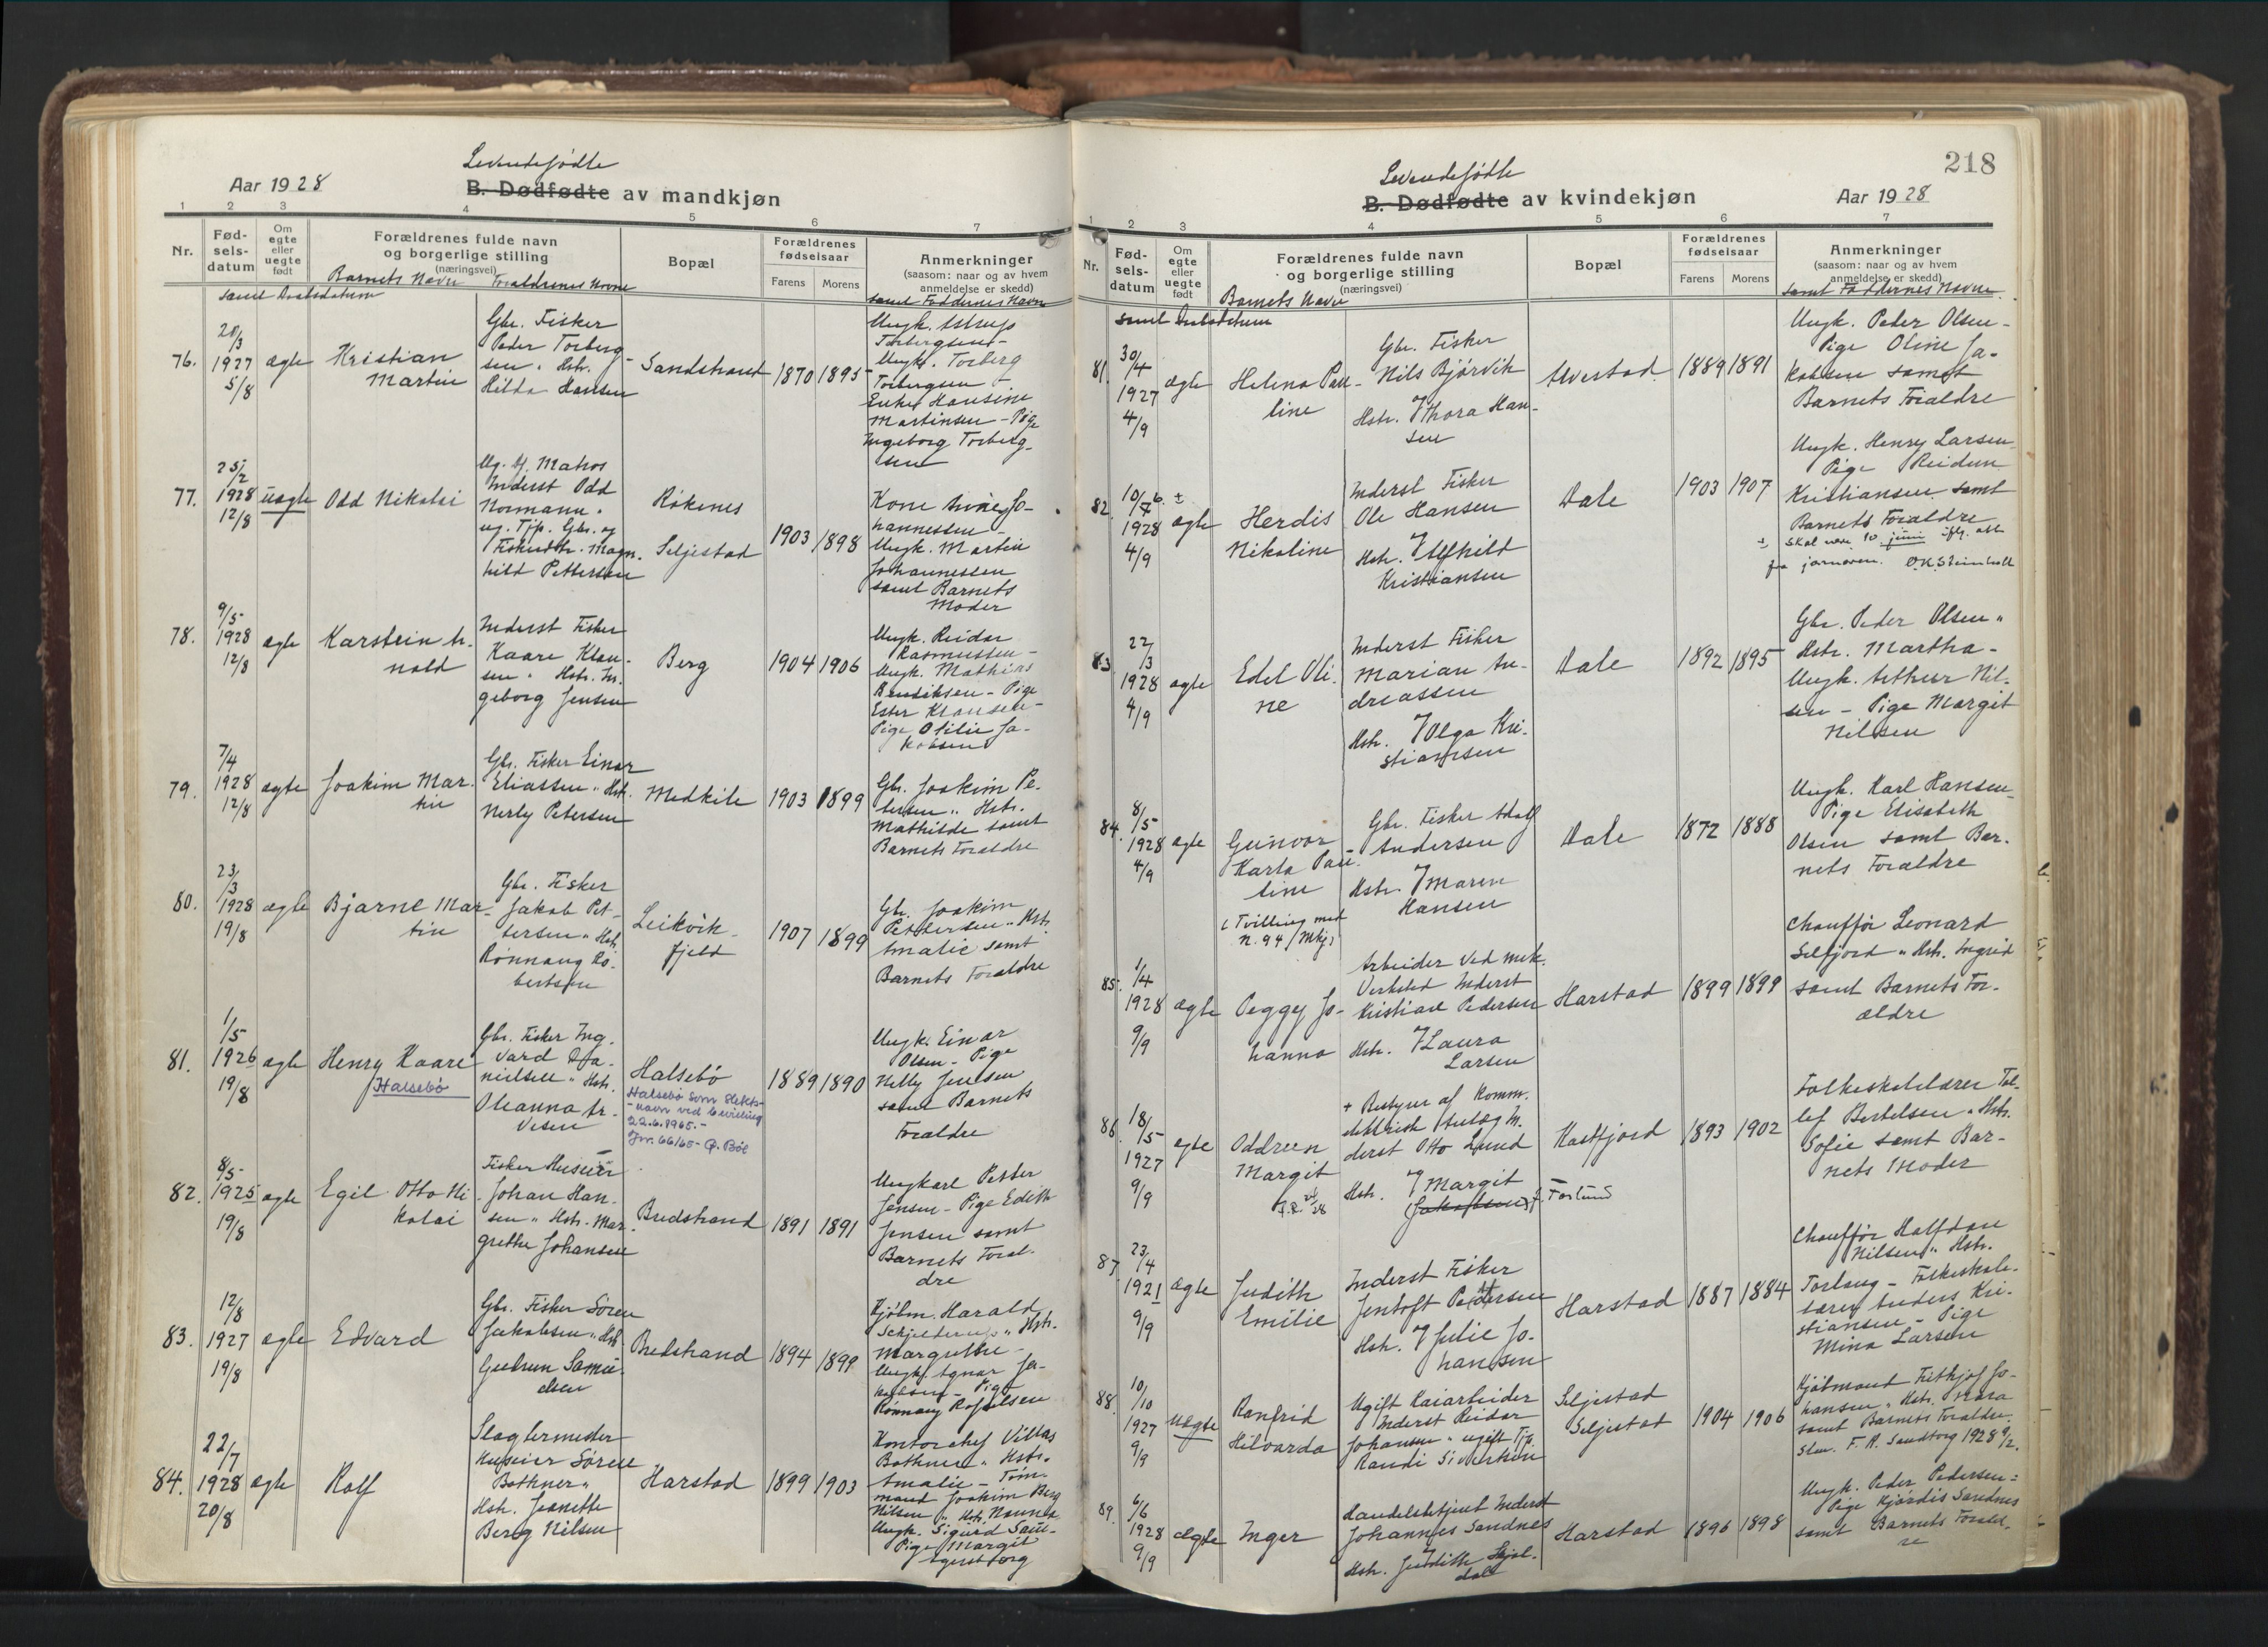 Levendefødte
Aar 1928
B. Dødfødte av mandkjøn
1 2 3 4 5 6 7
Nr.
Fød-
sels-
datum
Om
egte
eller
uegte
født
Forældrenes fulde navn
og borgerlige stilling
(næringsvei)
Barnets Navn Forældrenes Navne
Bopæl
Forældrenes
fødselsaar
Farens Morens
Anmerkninger
(saasom: naar og av hvem
anmeldelse er skedd)
samt Faddernes Navne
samt Daabsdatum
76.
20/3
1927
5/8
ægte
Kristian
Martin
Gbr. Fisker
Peder Torberg-
sen " Hstr.
Hilda Hansen
Sandstrand
1870 1895
Ungk. Astrup
Torbergsen -
Ungk. Torberg
Torbergsen -
Enke Hansine
Martinsen - Pige
Ingeborg Torberg-
sen
77.
25/2
1928
12/8
uægte
Odd Nikolai
Ug. Matros
Inderst Odd
Normann "
ug. Tjp. Gbr. og
Fiskerdtr. Magn-
hild Pettersen
Røkenes
Seljestad
1903 1898
Kone Jo-
hannessen -
Ungk. Martin
Johannessen
samt Barnets
Moder
78.
9/5
1928
12/8
ægte
Karstein Ar-
nold
Inderst Fisker
Kaare Klau-
sen " Hstr. In-
geborg Jensen
Berg
1904 1906
Ungk. Reidar
Rasmussen -
Ungk. Mathias
Bendiksen - Pige
Ester Klausen -
Pige Otilie Ja-
kobsen
79.
7/4
1928
12/8
ægte
Joakim Mar-
tin
Gbr. Fisker Einar
Eliassen " Hstr.
Nerly Petersen
Medkile
1903 1899
Gbr. Joakim Pe-
tersen " Hstr.
Mathilde samt
Barnets Forældre
80.
23/3
1928
19/8
ægte
Bjarne Mar-
tin
Gbr. Fisker
Jakob Pet-
tersen " Hstr.
Rønnaug Ro-
bertsen
Leikvik-
fjeld
1907 1899
Gbr. Joakim
Pettersen " Hstr.
Amalie samt
Barnets Forældre
81.
1/5
1926
19/8
ægte
Henry Kaare
Halsebö
Gbr. Fisker Ing-
vard Da-
nielsen " Hstr.
Oleanna Ar-
nesen
Halsebö
Halsebö som slekts-
navn ved bevilling
22.6.1965.-
Jnr. 66/65- P. Böe
1889 1890
Ungk. Einar
Olsen - Pige
Nelly Jensen
samt Barnets
Forældre
82.
8/5
1925
19/8
ægte
Egil Otto Ni-
kolai
Fisker Huseier
Johan Han-
sen " Hstr. Mar-
grethe Johansen
Bredstrand
1891 1891
Ungkarl Petter
Jensen - Pige Edith
Jensen samt
Barnets Foræl-
dre
83.
12/8
1927
19/8
ægte
Edvard
Gbr. Fisker Sören
Jakobsen " Hstr.
Gudrun Samu-
elsen
Bredstrand
1894 1899
Kjøbm. Harald
Schjelderup " Hstr.
Margrethe -
Ungk. Agnar Ja-
kobsen - Pige
Rønnaug Rafaelsen
84.
22/7
1928
20/8
ægte
Rolf
Slagtermester
Huseier Sören
Bothner "
Hstr. Jeanette
Berog Nilsen
Harstad
1899 1903
Kontorchef Villas
Bothner " Hstr.
Amalie - Tøm-
mand Joakim Berg
Nilsen " Hstr. Nanna
Ungk. Sigurd
Pige Margit
218
Levendefødte
B. Dødfødte av kvindekjøn
Aar 1928
1 2 3 4 5 6 7
Nr.
Fød-
sels-
datum
Om
egte
eller
uegte
født
Forældrenes fulde navn
og borgerlige stilling
(næringsvei)
Barnets Navn
Bopæl
Forældrenes
fødselsaar
Farens Morens
Anmerkninger
(saasom: naar og av hvem
anmeldelse er skedd)
samt Faddernes Navne
samt Daabsdatum
81.
30/4
1927
4/9
ægte
Helena Pau-
line
Gbr. Fisker
Nils Bjørvik
Hstr. Thora Han-
sen
Alvestad
1889 1891
Ungk. Peder Olsen -
Pige Oline Ja-
kobsen samt
Barnets Forældre
82.
10/7 6. ±
1928
4/9
ægte
Herdis
Nikoline
Inderst Fisker
Ole Hansen
Hstr. Alfhild
Kristiansen
Dale
1903 1907
Ungk. Henry Larsen
Pige Reidun
Kristiansen samt
Barnets Forældre
± skal være 10. juni iflg. att.
fra jormoren. O.K. Steinholt
83
22/3
1928
4/9
ægte
Edel Oli-
ne
Inderst Fisker
Marian An-
dreassen
Hstr. Olga Kri-
stiansen
Dale
1892 1895
Gbr. Peder Olsen "
Hstr. Martha -
Ungk. Arthur Nil-
sen - Pige Margit
Nilsen
84.
8/5
1928
4/9
ægte
Gunvor
Karla Pau-
line
( Tvilling med
N. 94 / Mkj)
Gbr. Fisker Adolf
Andersen
Hstr. Maren
Hansen
Dale
1872 1888
Ungk. Karl Hansen -
Pige Elisabeth
Olsen samt Bar-
nets Forældre
85.
1/4
1928
9/9
ægte
Peggy Jo-
hanna
Arbeider ved mek.
Verksted Inderst
Kristian Pedersen
Hstr. Laura
Larsen
Harstad
1899 1899
Chauffør Leonard
Selfjord " Hstr. Ingrid
samt Barnets For-
ældre
86.
18/5
1927
9/9
ægte
Oddreen
Margit
+ Bestyrer af Komm.
elektrisk In-
derst Otto Lund
Hstr. Margit
(Jakobsen) f. Forlund
Kastfjord
1893 1902
Folkeskolelærer Tol-
lef Bertelsen " Hstr.
Sofie samt Bar-
nets Moder
87
23/4
1921
9/9
ægte
Judith
Emilie
Inderst Fisker
Jentoft Pedersen
Hstr. Julie Jo-
hansen
Harstad
1887 1884
Chauffør Halfdan
Nilsen " Hstr.
Torlaug - Folkeskole-
lærer Anders Kri-
stiansen - Pige
Mina Larsen
88.
10/10
1927
9/9
uægte
Ranfrid
Hilvarda
Ugift Kaiarbeider
Inderst Reidar
Johansen " ugift Tjp.
Randi Sivertsen
Seljestad
Seljestad
1904 1906
Kjøbmand Frithjof Jo-
hansen " Hstr. Nara
samt Barnets Forældre.
Stm. F. R. Sandtorg 1928 9/2.
89.
6/6
1928
9/9
ægte
Inger
Handelsbetjent Inderst
Johannes Sandnes
Hstr. Judith Skjel-
dal
Harstad
1896 1898
Ungk. Peder Pedersen =
Pige Hjördis Sandnes
samt Barnets Foræld-
re